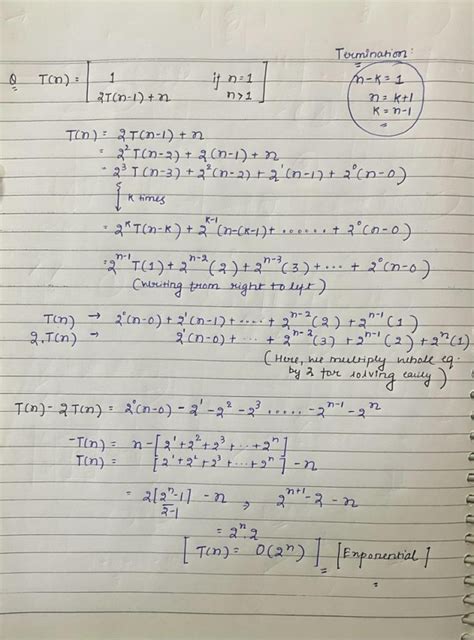 Termination:
Q T(n) = [ 1 if n=1
2T(n-1) + n n>1 ]
n-k = 1
n = k+1
k = n-1
T(n) = 2T(n-1) + n
= 2²T(n-2) + 2(n-1) + n
= 2³T(n-3) + 2²(n-2) + 2¹(n-1) + 2⁰(n-0)
↓ k times
= 2ᵏT(n-k) + 2ᵏ⁻¹(n-(k-1) + ...... + 2⁰(n-0)
= 2ⁿ⁻¹T(1) + 2ⁿ⁻²(2) + 2ⁿ⁻³(3) + ... + 2⁰(n-0)
(Writing from right to left)
T(n) → 2⁰(n-0) + 2¹(n-1) + .... + 2ⁿ⁻²(2) + 2ⁿ⁻¹(1)
2.T(n) → 2¹(n-0) + ... + 2ⁿ⁻²(3) + 2ⁿ⁻¹(2) + 2ⁿ(1)
(Here, we multiply whole eq.
by 2 for solving easily)
T(n) - 2T(n) = 2⁰(n-0) - 2¹ - 2² - 2³ ..... - 2ⁿ⁻¹ - 2ⁿ
-T(n) = n - [2¹ + 2² + 2³ + ... + 2ⁿ]
T(n) = [2¹ + 2² + 2³ + ... + 2ⁿ] - n
= 2[2ⁿ-1]/2-1 - n , 2ⁿ⁺¹ - 2 - n
= 2ⁿ.2
[T(n) = O(2ⁿ)] = [Exponential]